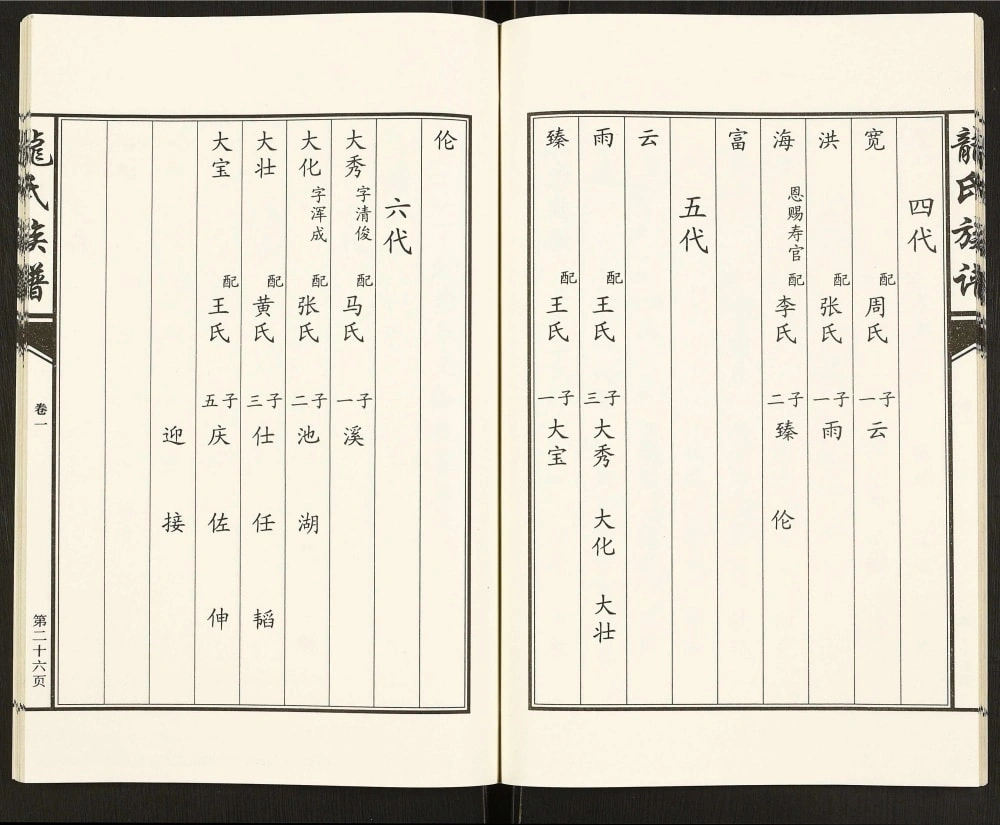 龍氏族谱
四代
宽 配周氏 一子 云
洪 配张氏 一子 雨
海 恩赐寿官 配李氏 二子 臻 伦
富
五代
云
雨 配王氏 三子 大秀 大化 大壮
臻 配王氏 一子 大宝
伦
六代
大秀 字清俊 配马氏 一子 溪
大化 字浑成 配张氏 二子 池 湖
大壮 配黄氏 三子 仕 任 韬
大宝 配王氏 五子 庆 佐 伸
迎 接
龍氏族谱
卷一
第二十六页